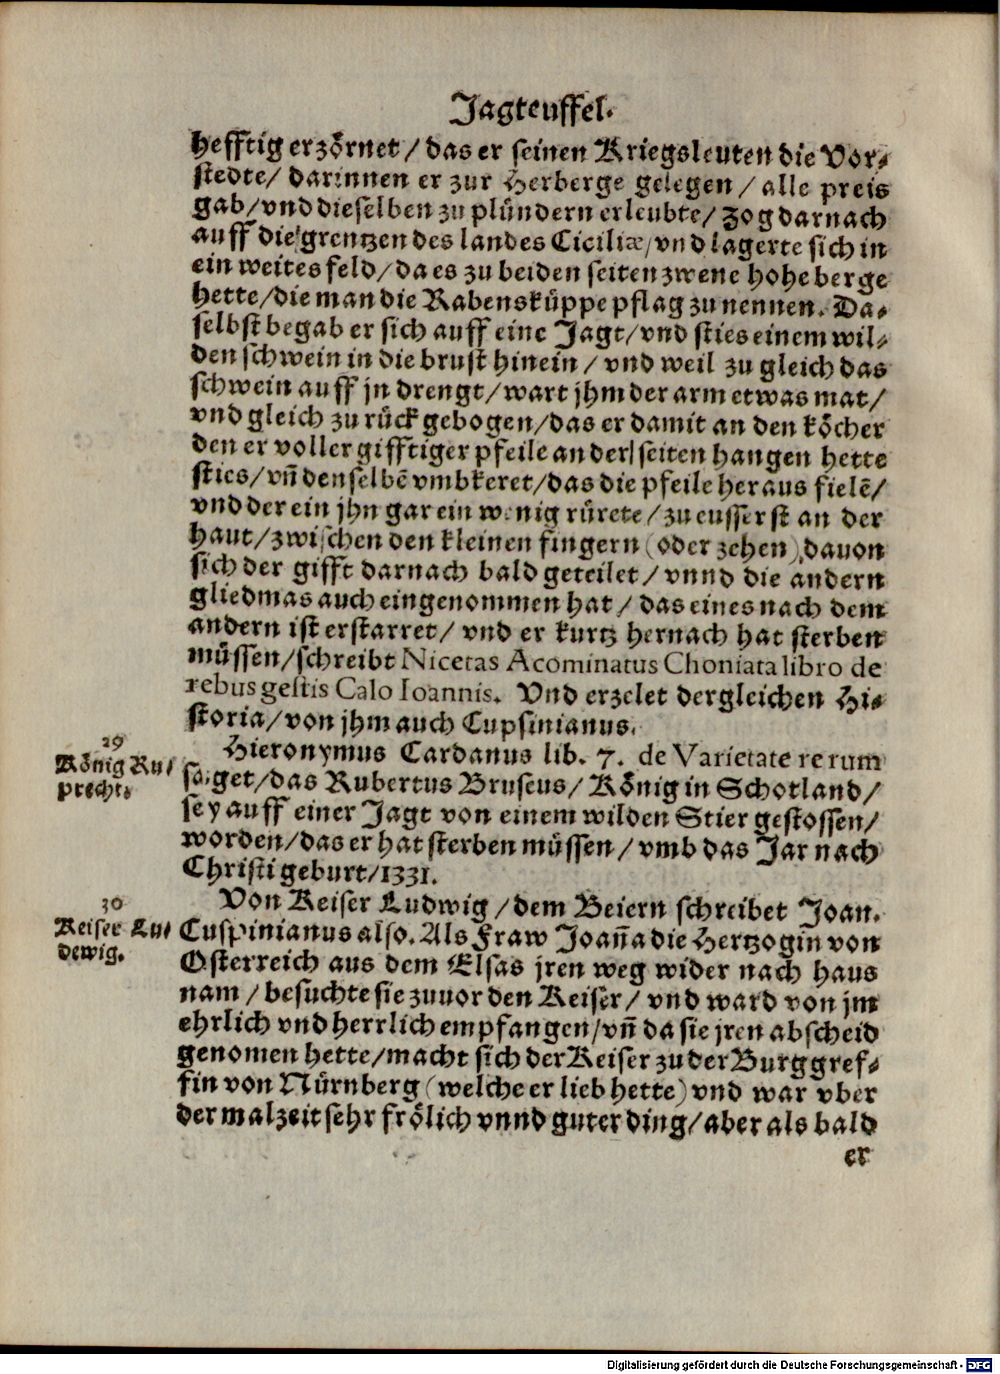 Jagteuffel.
hefftig erzörnet / das er seinen Kriegsleuten die Vor⸗
stedte / darinnen er zur Herberge gelegen / alle preis
gab / vnd dieselben zu plündern erleubte / zog darnach
auff die grentzen des landes Ciciliæ / vnd lagerte sich in
ein weites feld / da es zu beiden seiten zwene hohe berge
hette / die man die Rabensküppe pflag zu nennen. Da⸗
selbst begab er sich auff eine Jagt / vnd sties einem wil⸗
den schwein in die brust hinein / vnd weil zu gleich das
schwein auff jn drengt / wart jhm der arm etwas mat /
vnd gleich zu rück gebogen / das er damit an den köcher
den er voller gifftiger pfeile an der seiten hangen hette
sties / vñ denselbẽ vmbkeret / das die pfeile heraus fielẽ /
vnd der ein jhn gar ein wenig rürete / zu eusserst an der
haut / zwischen den kleinen fingern (oder zehen) dauon
sich der gifft darnach bald geteilet / vnnd die andern
gliedmas auch eingenommen hat / das eines nach dem
andern ist erstarret / vnd er kurtz hernach hat sterben
müssen / schreibt Nicetas Acominatus Choniata libro de
rebus gestis Calo Ioannis. Vnd erzelet dergleichen Hi⸗
storia / von jhm auch Cupsinianus.
29
König Ru⸗
precht.
Hieronymus Cardanus lib. 7. de Varietate rerum
saget / das Rubertus Bruseus / König in Schotland /
sey auff einer Jagt von einem wilden Stier gestossen /
worden / das er hat sterben müssen / vmb das Jar nach
Christi geburt / 1331.
30
Keiser Lu⸗
dewig.
Von Keiser Ludwig / dem Beiern schreibet Joan.
Cuspinianus also. Als Fraw Joaña die Hertzogin von
Osterreich aus dem Elsas jren weg wider nach haus
nam / besuchte sie zuuor den Keiser / vnd ward von jm
ehrlich vnd herrlich empfangen / vñ da sie jren abscheid
genomen hette / macht sich der Keiser zu der Burggref⸗
fin von Nürnberg (welche er lieb hette) vnd war vber
der malzeit sehr frölich vnnd guter ding / aber als bald
er
Digitalisierung gefördert durch die Deutsche Forschungsgemeinschaft - DFG